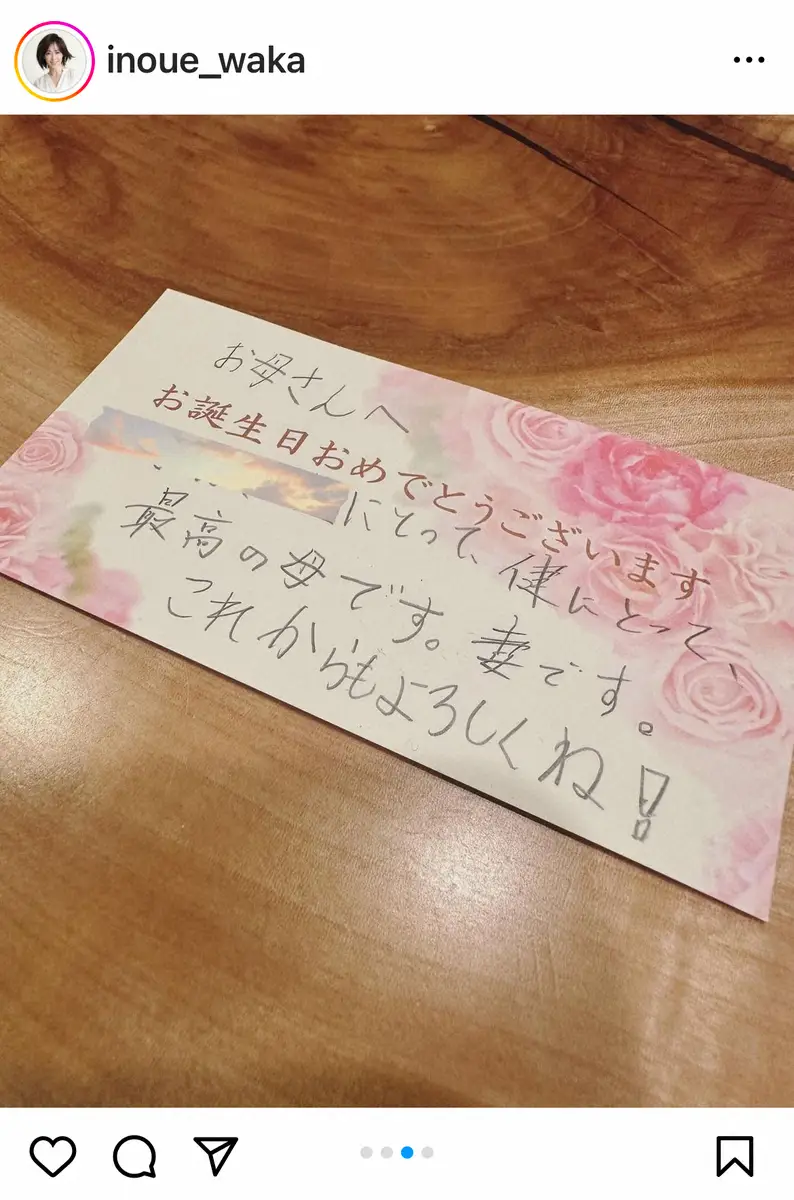 inoue_waka
お母さんへ
お誕生日おめでとうございます
にとって、健にとって、
最高の母です。妻です。
これからもよろしくね!